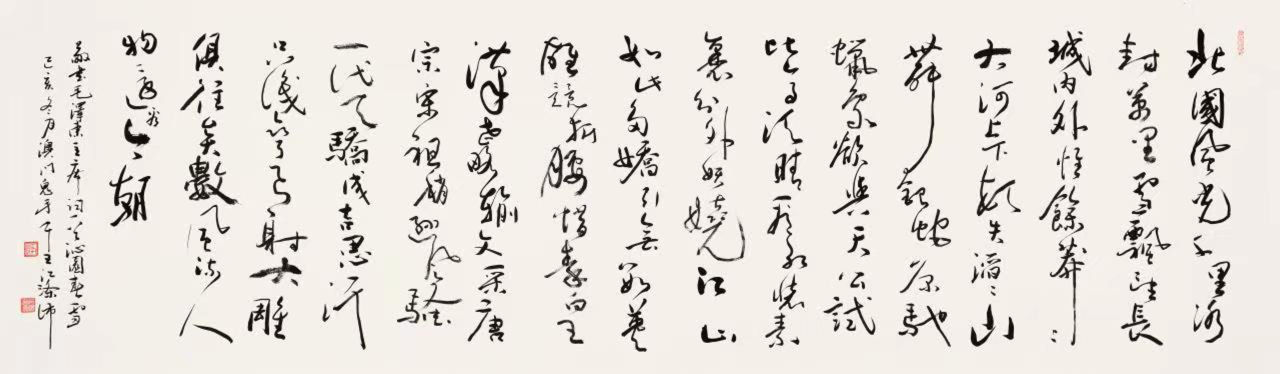 北國風光千里冰
封萬里雪飄望長
城內外惟餘莽〻
大河上下頓失滔〻山
舞銀蛇原馳
蠟象欲與天公試
比高須晴日看紅裝素
裹分外妖嬈江山
如此多嬌引無數英
雄競折腰惜秦皇
漢武略輸文采唐
宗宋祖稍遜風騷
一代天驕成吉思汗
只識彎弓射大雕
俱往矣數風流人
物還看今朝
敬書毛澤東主席詞一首沁園春雪
己亥冬月澳門